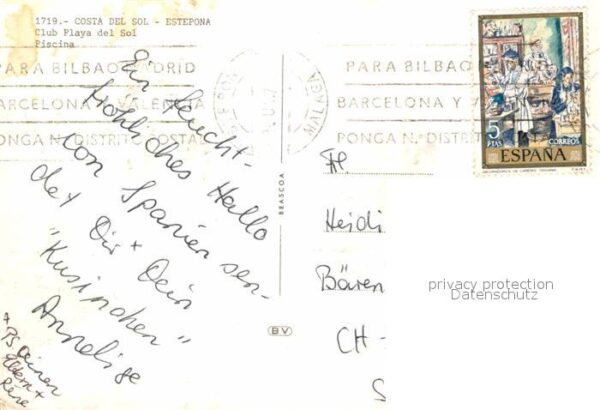 1719.- COSTA DEL SOL - ESTEPONA
Club Playa del Sol
Piscina
PARA BILBAO MADRID
BARCELONA Y VALENCIA
PONGA N. DISTRITO POSTAL
MALAGA
PARA BILBAO
BARCELONA Y
PONGA N. DISTRITO
5
PTAS
CORREOS
ESPAÑA
Ein feucht-
fröhliches Hallo
von Spanien sen-
det Dir + Dein
"Kusinchen"
Annelige
PS Deinen
Eltern +
René
BEASCOA
BV
Fr.
Heidi
Bären
CH-
privacy protection
Datenschutz